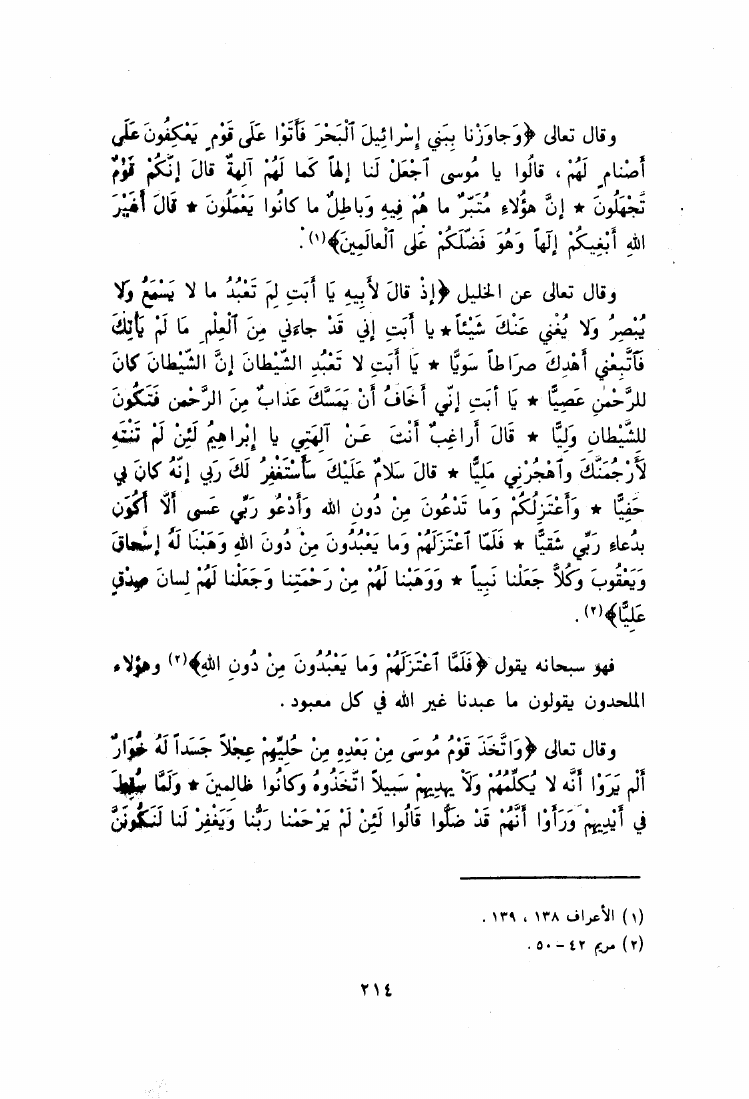 وقال تعالى ﴿وَجاوَزْنا بِبَني إِسْرائِيلَ ٱلْبَحْرَ فَأَتَوْا عَلَى قَوْمٍ يَعْكِفُونَ عَلَى
أَصْنامٍ لَهُمْ ، قالُوا يا مُوسى ٱجْعَلْ لَنا إِلهاً كَما لَهُمْ آلِهةٌ قالَ إِنَّكُمْ قَوْمٌ
تَجْهَلُونَ ★ إِنَّ هؤُلاءِ مُتَبَّرٌ ما هُمْ فِيهِ وَباطِلٌ ما كانُوا يَعْمَلُونَ ★ قَالَ أَغَيْرَ
اللهِ أَبْغِيكُمْ إِلَهاً وَهُوَ فَضَّلَكُمْ عَلَى ٱلْعالَمِينَ﴾(١) .
وقال تعالى عن الخليل ﴿إِذْ قالَ لأَبِيهِ يَا أَبَتِ لِمَ تَعْبُدُ ما لا يَسْمَعُ وَلا
يُبْصِرُ وَلا يُغْنِي عَنْكَ شَيْئاً★ يا أَبَتِ إني قَدْ جاءَني مِنَ ٱلْعِلْمِ مَا لَمْ يَأْتِكَ
فَٱتَّبِعْني أَهْدِكَ صراطاً سَوِيًّا ★ يَا أَبَتِ لا تَعْبُدِ الشّيْطانَ إنَّ الشّيْطانَ كانَ
للرَّحْمٰنِ عَصِيًّا ★ يَا أبَتِ إنّي أَخَافُ أَنْ يَمَسَّكَ عَذابٌ مِنَ الرَّحْمن فَتَكُونَ
للشَّيْطانِ وَلِيًّا ★ قَالَ أَراغِبٌ أَنْتَ عَنْ آلِهَتِي يا إِبْراهِيمُ لَئِنْ لَمْ تَنْتَهِ
لأَرْجُمَنَّكَ وٱهْجُرْنِي مَلِيًّا ★ قالَ سَلامٌ عَلَيْكَ سَأَسْتَغْفِرُ لَكَ رَبي إنّهُ كانَ بي
حَفِيًّا ★ وَأَعْتَزِلُكُمْ وَما تَدْعُونَ مِنْ دُونِ الله وَأَدْعُو رَبِّي عَسى أَلَّا أَكُونَ
بدُعاءِ رَبِّي شَقيًّا ★ فَلَمّا اعْتَزَلَهُمْ وَما يَعْبُدُونَ مِنْ دُونَ اللهِ وَهَبْنا لَهُ إسْحاقَ
وَيَعْقُوبَ وَكُلاًّ جَعَلْنا نَبِياً ★ وَوَهَبْنا لَهُمْ مِنْ رَحْمَتِنا وَجَعَلْنا لَهُمْ لِسانَ صِدْقٍ
عَلِيًّا﴾(٢) .
فهو سبحانه يقول ﴿فَلَمَّا ٱعْتَزَلَهُمْ وَما يَعْبُدُونَ مِنْ دُونِ اللهِ﴾(٢) وهؤلاء
الملحدون يقولون ما عبدنا غير الله في كل معبود .
وقال تعالى ﴿وَاتَّخَذَ قَوْمُ مُوسَى مِنْ بَعْدِهِ مِنْ حُلِيِّهِمْ عِجْلاً جَسَداً لَهُ خُوَارٌ
أَلَمْ يَرَوْا أَنَّه لا يُكَلِّمُهُمْ وَلاَ يهدِيهِمْ سَبِيلاً اتّخَذُوهُ وكانُوا ظالِمِينَ ★ وَلَمَّا سُقِطَ
في أَيْدِيهِمْ وَرَأَوْا أَنَّهُمْ قَدْ ضَلُّوا قَالُوا لَئِنْ لَمْ يَرْحَمْنا رَبُّنا وَيَغْفِرْ لَنا لَنَكُونَنَّ
(١) الأعراف ١٣٨ ، ١٣٩ .
(٢) مريم ٤٢ – ٥٠ .
٢١٤